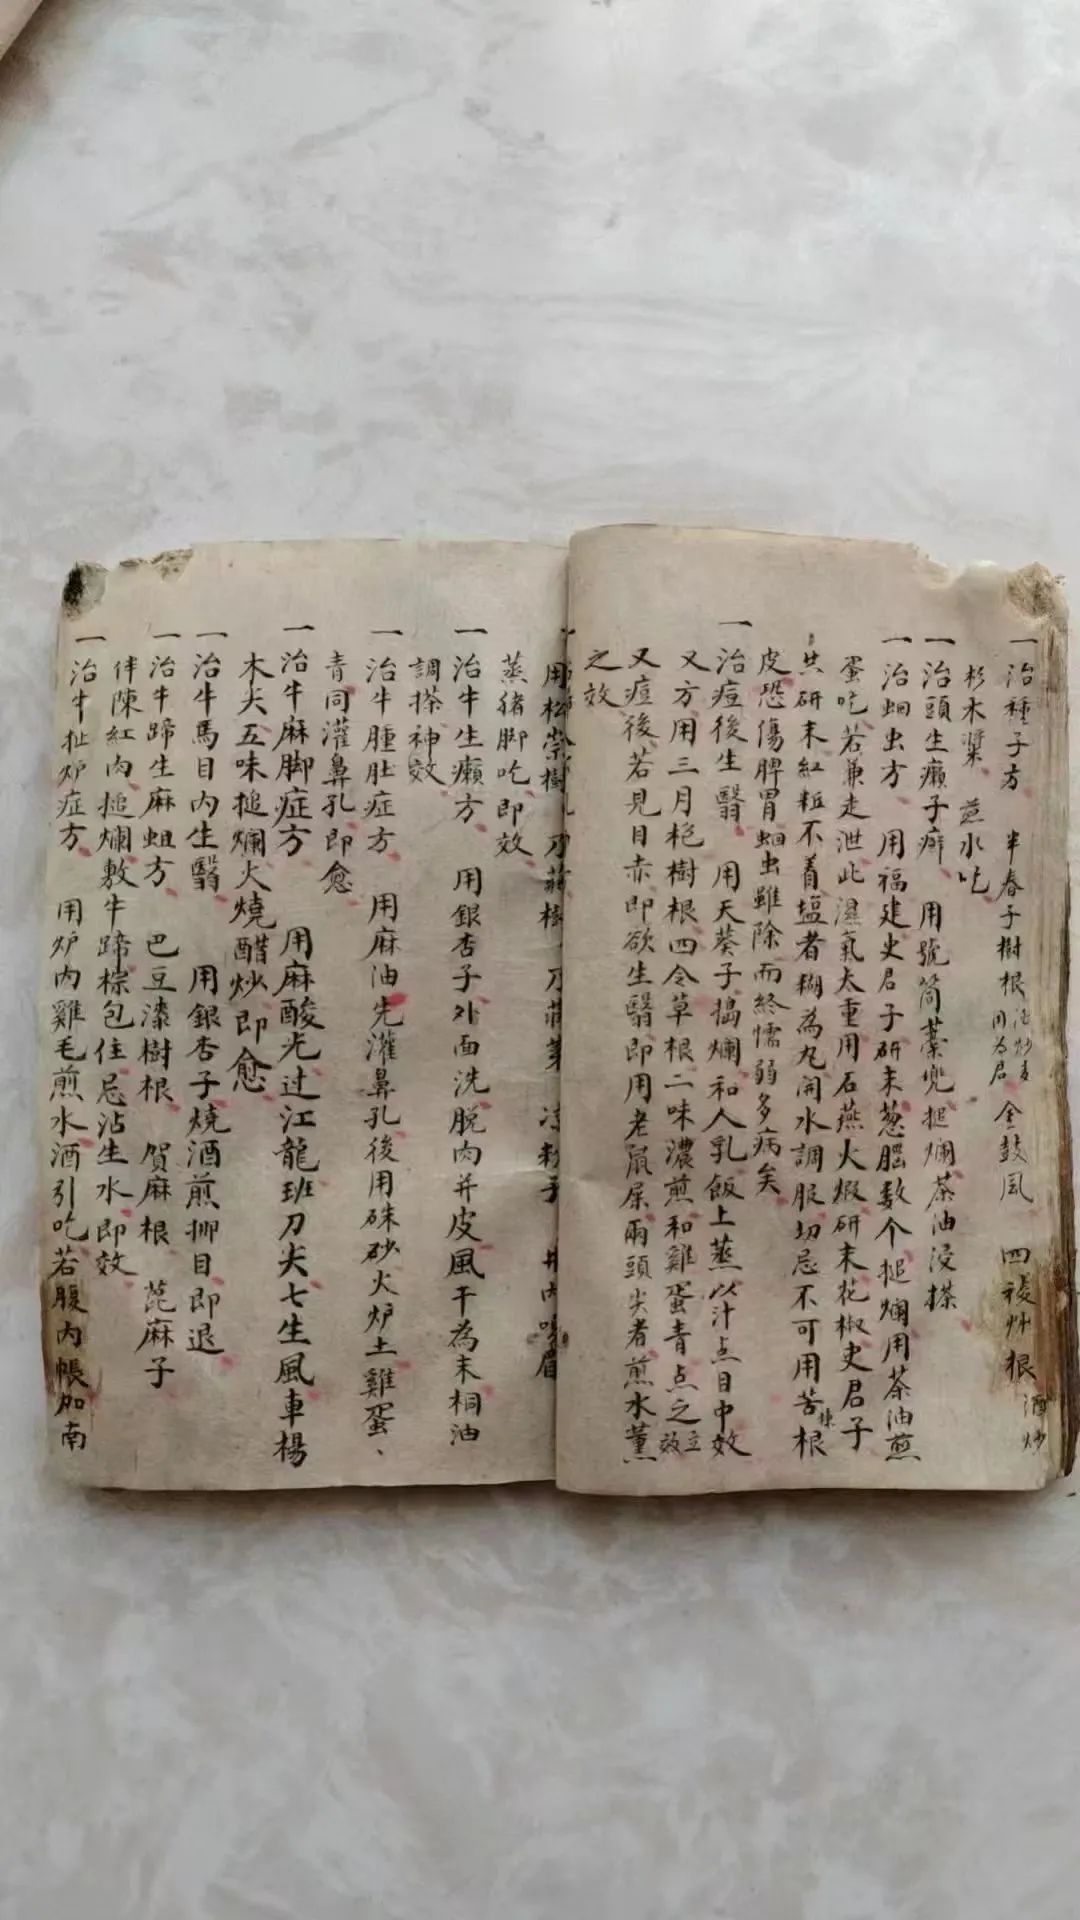 一治種子方 半春子樹根 用為君 金鼓風 四稜艸根 酒炒
杉木槳 煎水吃
一治頭生癩子癬 用號筒藁兜搥爛茶油浸搽
一治蛔虫方 用福建史君子研末葱腦数个搥爛用茶油煎
蛋吃若兼走泄此濕氣太重用石燕火煅研末花椒史君子
共研末紅粒不着塩者糊為丸開水調服切忌不可用苦楝根
皮恐傷脾胃蛔虫雖除而終懦弱多病矣
一治痘後生翳 用天葵子搗爛和人乳飯上蒸以汁点目中效
又方用三月艳樹根四令草根二味濃煎和雞蛋青点之立效
又痘後若見目赤即欲生翳即用老鼠屎兩頭尖者煎水薰
之效
用松 樹 刀蒴樹 涼粉子 井内
蒸豬脚吃即效
一治牛生癩方 用銀杏子外面洗脱肉并皮風干為末桐油
調搽神效
一治牛腫肚症方 用麻油先灌鼻孔後用硃砂火炉土雞蛋、
青同灌鼻孔即愈
一治牛麻脚症方 用麻酸光过江龍班刀尖七生風車楊
木尖五味搥爛火燒醋炒即愈
一治牛馬目内生翳 用銀杏子燒酒煎抑目即退
一治牛蹄生麻蛆方 巴豆漆樹根 賀麻根 萞麻子
伴陳紅肉搥爛敷牛蹄棕包住忌沾生水即效
一治牛扯炉症方 用炉内雞毛煎水酒引吃若腹内帳加南